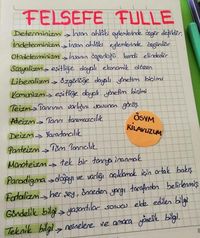 FELSEFE FULLE
Determinizm → İnsan ahlaki eylemlerinde özgür değildir.
İndeterminizm → İnsan ahlaki eylemlerinde özgürdür
Otodeterminizm → İnsanın özgürlüğü kendi elindedir
Sosyalizm → eşitliğe dayalı ekonomik düzen
Liberalizm → özgürlüğe dayalı yönetim biçimi
Komünizm → eşitliğe dayalı yönetim biçimi
Teizm → Tanrının varlığını savunan görüş
Ateizm → Tanrı tanımazcılık
Deizm → Yaradancılık
Panteizm → Tüm Tanrıcılık
Monoteizm → tek bir tanrıya inanmak
Paradigma → doğayı ve varlığı açıklamak için ortak bakış
Fatalizm → her şey, önceden yargı tarafından belirlenmiş
Gündelik bilgi → yaşantılar sonucu elde edilen bilgi
Teknik bilgi → nesnelere ve amaca yönelik bilgi.
ÖSYM
KILAVUZUM